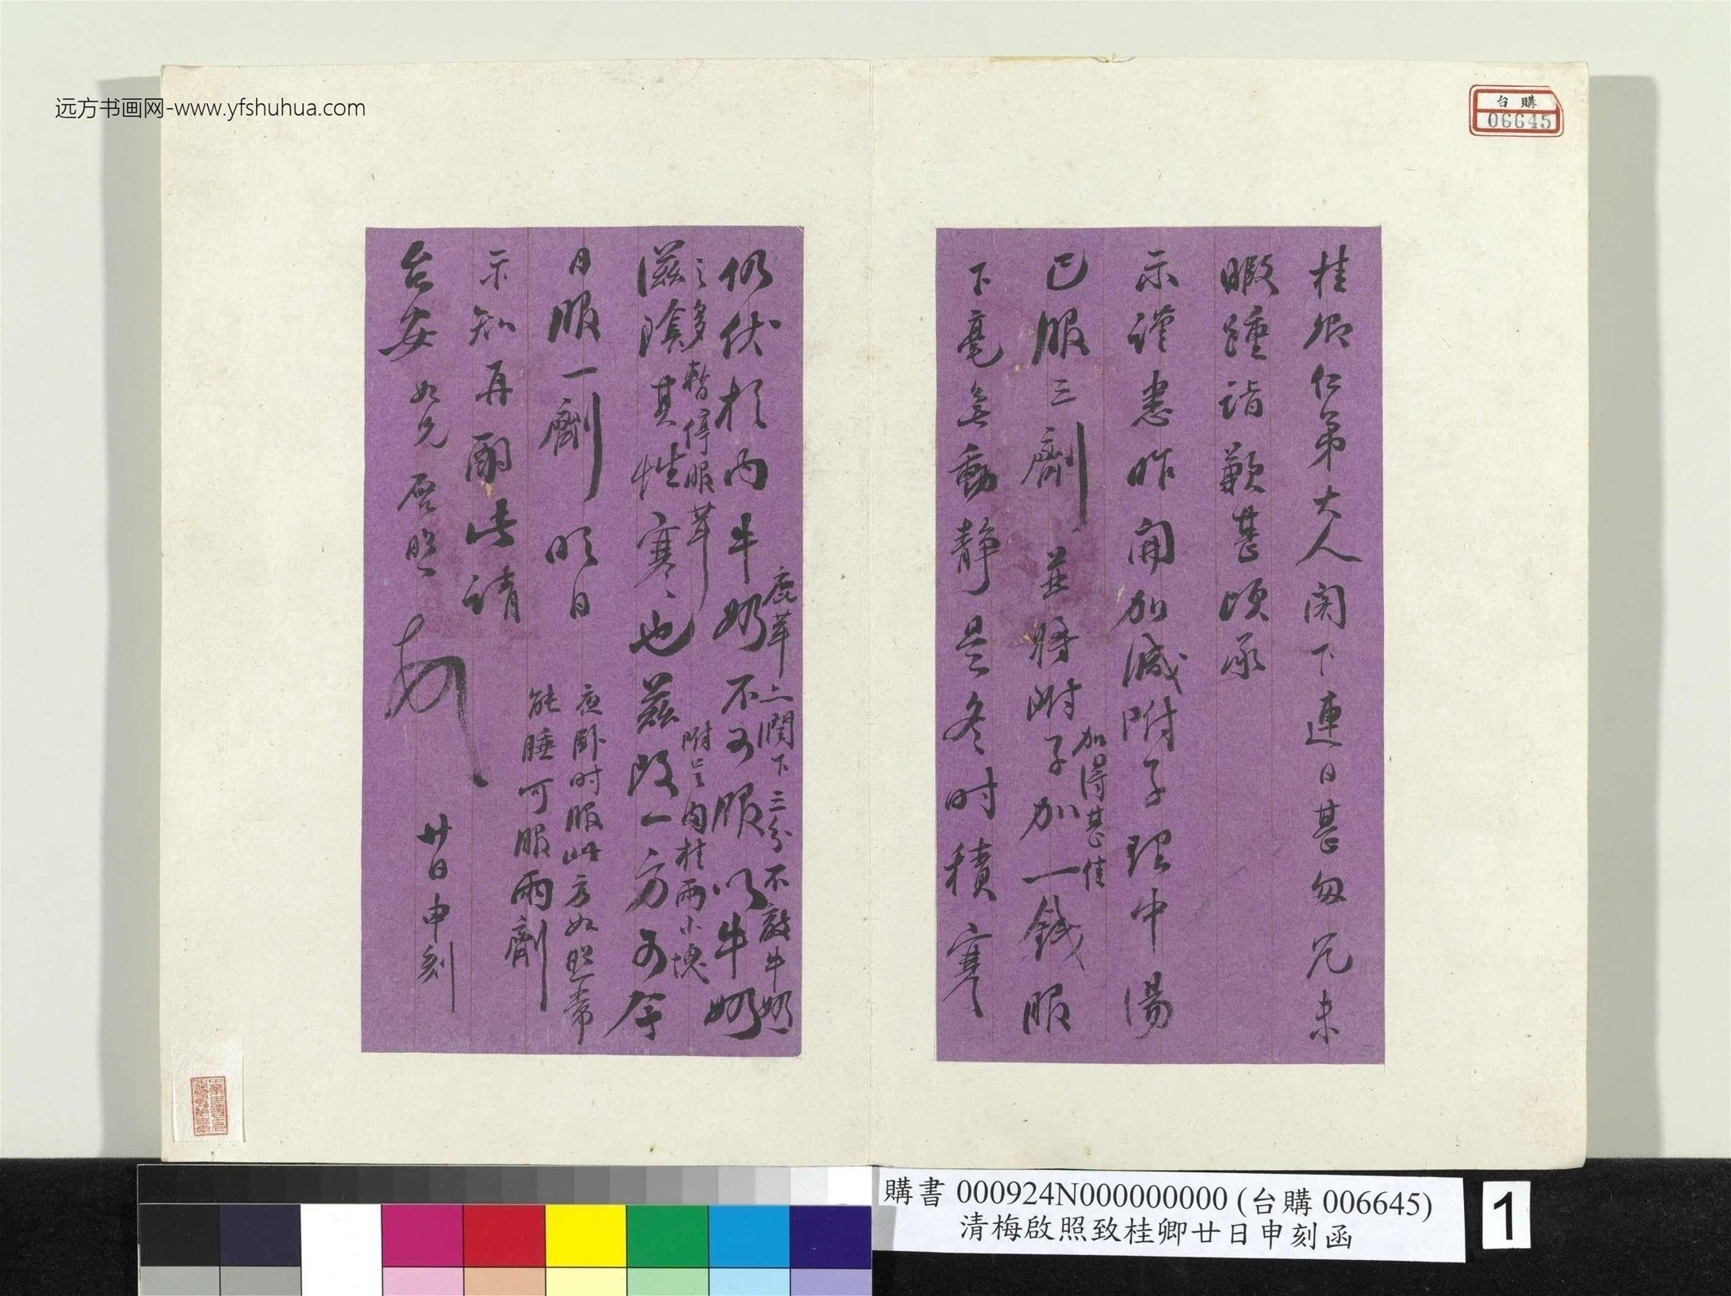 远方书画网-www.yfshuhua.com
台購
06645
桂卿仁弟大人閣下連日甚匆冗未
暇踵詣歉甚頃承
示謹悉昨開加減附子理中湯
已服三劑並將附子加一錢服
加得甚佳
下毫無動靜是冬时積寒
仍伏於內牛奶不可服以牛奶
鹿茸上潤下三分不敵牛奶
之多暫停服茸
附呈肉桂兩小塊
滋陰其性寒也茲改一方可今
日服一劑明日
夜卧时服此方如照常
能睡可服兩劑
示知再酌此請
台安 如兄啓照
廿日申刻
購書 000924N000000000 (台購 006645)
清梅啟照致桂卿廿日申刻函
1